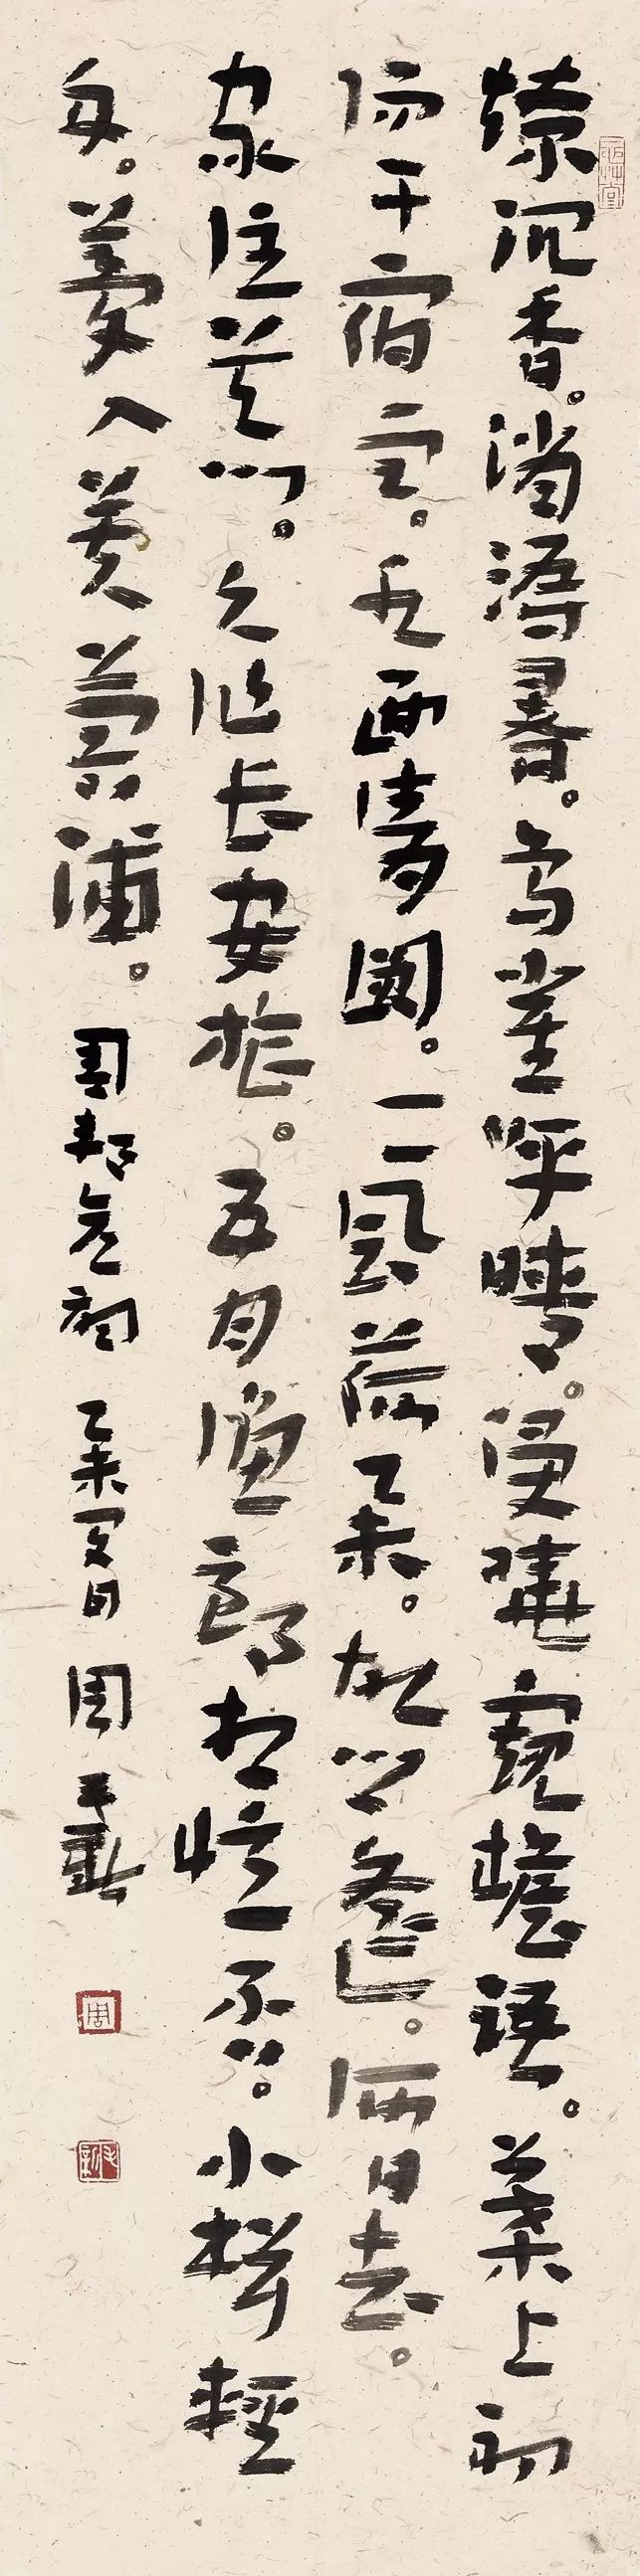 燎沉香。消溽暑。鸟雀呼晴。侵曉窺檐語。葉上初
陽干宿雨。水面清圓。一一風荷舉。故鄉遥。何日去。
家住吴門。久作長安旅。五月漁郎相憶否。小楫輕
舟。夢入芙蓉浦。周邦彦詞 乙未夏日 周
周